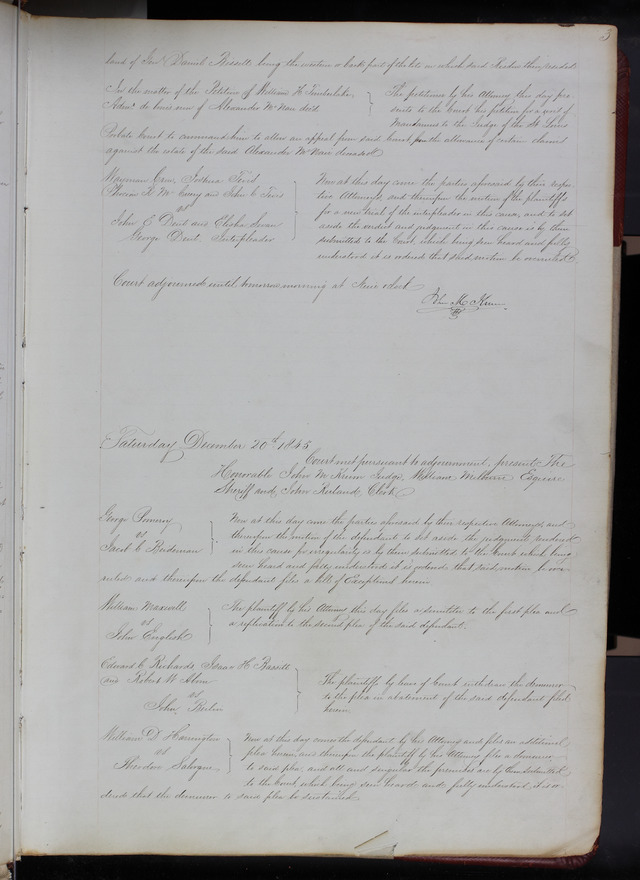 5
land of Daniel Bissell, being the western or back part of the lot on which said then resided
In the matter of the Petition of William H Timberlake,
Adm. de bonis non of Alexander Mc Nair decd.
The petitioner by his Attorney this day pre
sents to the Court his petition for a writ of
Mandamus to the Judge of the St Louis
Probate Court to command him to allow an appeal from said Court from the allowance of certain claims
against the estate of the said Alexander Mc Nair deceased
Wayman Crow, Joshua
Mc Creery and John C
vs
John E Dent and Elisha Swan
George Dent, Interpleader
Now at this day come the parties aforesaid by their respec
tive Attorneys, and thereupon the motion of the plaintiffs
for a new trial of the interpleader in this cause, and to set
aside the verdict and judgment in this cause is by them
submitted to the Court, which being seen heard and fully
understood it is ordered that said motion be overruled
Court adjourned until tomorrow morning at Nine oclock
John M Krum
Saturday December 20th 1845
Court met pursuant to adjournment, present The
Honorable John M Krum Judge, William Milburn Esquire
Sheriff and, John Ruland, Clerk
George
vs
Jacob C
Now at this day come the parties aforesaid by their respective Attorneys, and
thereupon the motion of the defendants to set aside the judgment rendered
in this cause for irregularity is by them submitted to the Court which being
seen heard and fully understood it is ordered that said motion be over
ruled and thereupon the defendant files a bill of Exceptions herein
William Maxwell
vs
John English
The plaintiff by his Attorney this day files a demurrer to the first plea and
a replication to the second plea of the said defendant.
Edward C Richards, Isaac H Bassett
and Robert W
vs
John
The plaintiffs by leave of Court withdraw the demurrer
to the plea in abatement of the said defendant filed
herein.
William D Harrington
vs
Theodore
Now at this day comes the defendant by his Attorney and files an additional
plea herein, and thereupon the plaintiff by his Attorney files a demurrer
to said plea, and all and singular the premises are by them submitted
to the Court, which being seen heard and fully understood, it is or
dered that the demurrer to said plea be sustained